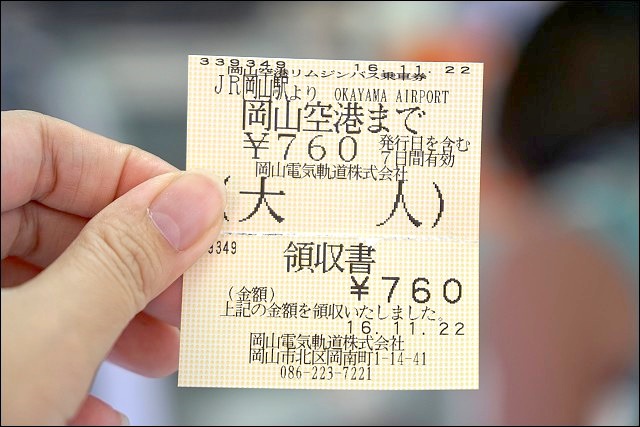 339349 16.11.22
岡山空港リムジンバス乗車券
JR岡山駅より OKAYAMA AIRPORT
岡山空港まで
¥760 発行日を含む
7日間有効
岡山電気軌道株式会社
(大人)
9349 領収書
(金額) ¥760
上記の金額を領収いたしました。
16.11.22
岡山電気軌道株式会社
岡山市北区岡南町1-14-41
086-223-7221